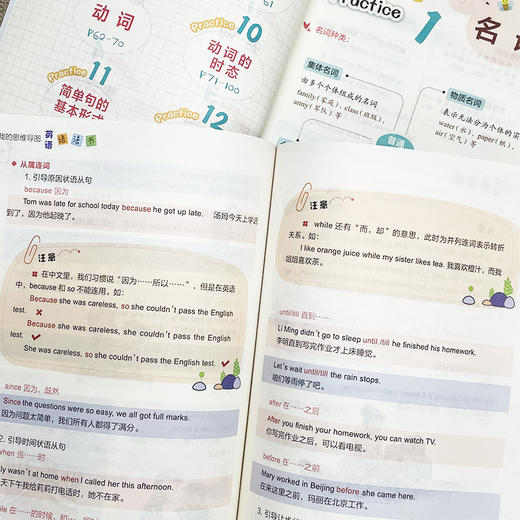 动词
P62-70
Practice
10
动词的
时态
P71-100
Practice
11
简单句的
基本形式
12
Practice
1
名词
名词种类:
集体名词
由多个个体组成的名词
family(家庭), class(班级),
army(军队)等
物质名词
表示无法分为个体的实
water(水), paper(纸),
air(空气)等
普通
我的思维导图
英语
语法书
从属连词
1. 引导原因状语从句
because 因为
Tom was late for school today because he got up late. 汤姆今天上学迟
到了,因为他起晚了。
注意
在中文里,我们习惯说“因为……所以……”,但是在英语
中,because 和 so 不能连用。如:
Because she was careless, so she couldn't pass the English
test.
Because she was careless, she couldn't pass the English
test.
She was careless, so she couldn't pass the English test.
since 因为,既然
Since the questions were so easy, we all got full marks.
因为问题太简单,我们所有人都得了满分。
2. 引导时间状语从句
when 当……时
ly wasn't at home when I called her this afternoon.
天下午我给莉莉打电话时,她不在家。
ile 在……的时候,和
注意
while 还有“而,却”的意思,此时为并列连词表示转折
关系。如:
I like orange juice while my sister likes tea. 我喜欢橙汁,而我
姐姐喜欢茶。
until/till 直到……
Li Ming didn't go to sleep until /till he finished his homework.
李明直到写完作业才上床睡觉。
Let's wait until/till the rain stops.
咱们等雨停了吧。
after 在……之后
After you finish your homework, you can watch TV.
你写完作业之后,可以看电视。
before 在……之前
Mary worked in Beijing before she came here.
在来这里之前,玛丽在北京工作。
3. 引导让步